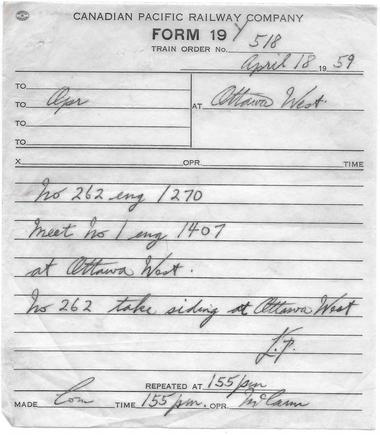 CANADIAN PACIFIC RAILWAY COMPANY
FORM 19 Y
TRAIN ORDER No. 518
April 18 1959
TO
TO Opr AT Ottawa West.
TO
TO
X OPR. TIME
No 262 eng 1270
Meet No 1 eng 1407
at Ottawa West.
No 262 take siding at Ottawa West
REPEATED AT 155 pm
MADE Com TIME 155 pm. OPR. McCann